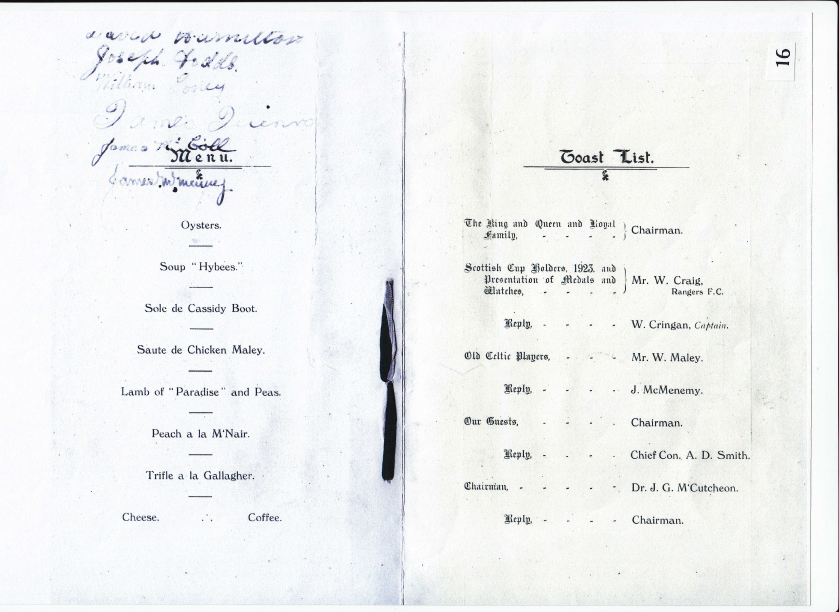 David Hamilton
Joseph Dodds.
William
James
James Mc Coll
Menu.
James McMenemy
Oysters.
Soup "Hybees."
Sole de Cassidy Boot.
Saute de Chicken Maley.
Lamb of "Paradise" and Peas.
Peach a la M'Nair.
Trifle a la Gallagher.
Cheese. Coffee.
16
Toast List.
The King and Queen and Royal
Family, - - - - Chairman.
Scottish Cup Holders, 1923, and
Presentation of Medals and
Watches, - - - - Mr. W. Craig,
Rangers F.C.
Reply, - - - - W. Cringan, Captain.
Old Celtic Players, - - - Mr. W. Maley.
Reply, - - - - J. McMenemy.
Our Guests, - - - - Chairman.
Reply, - - - - Chief Con. A. D. Smith.
Chairman, - - - - - Dr. J. G. M'Cutcheon.
Reply, - - - - Chairman.